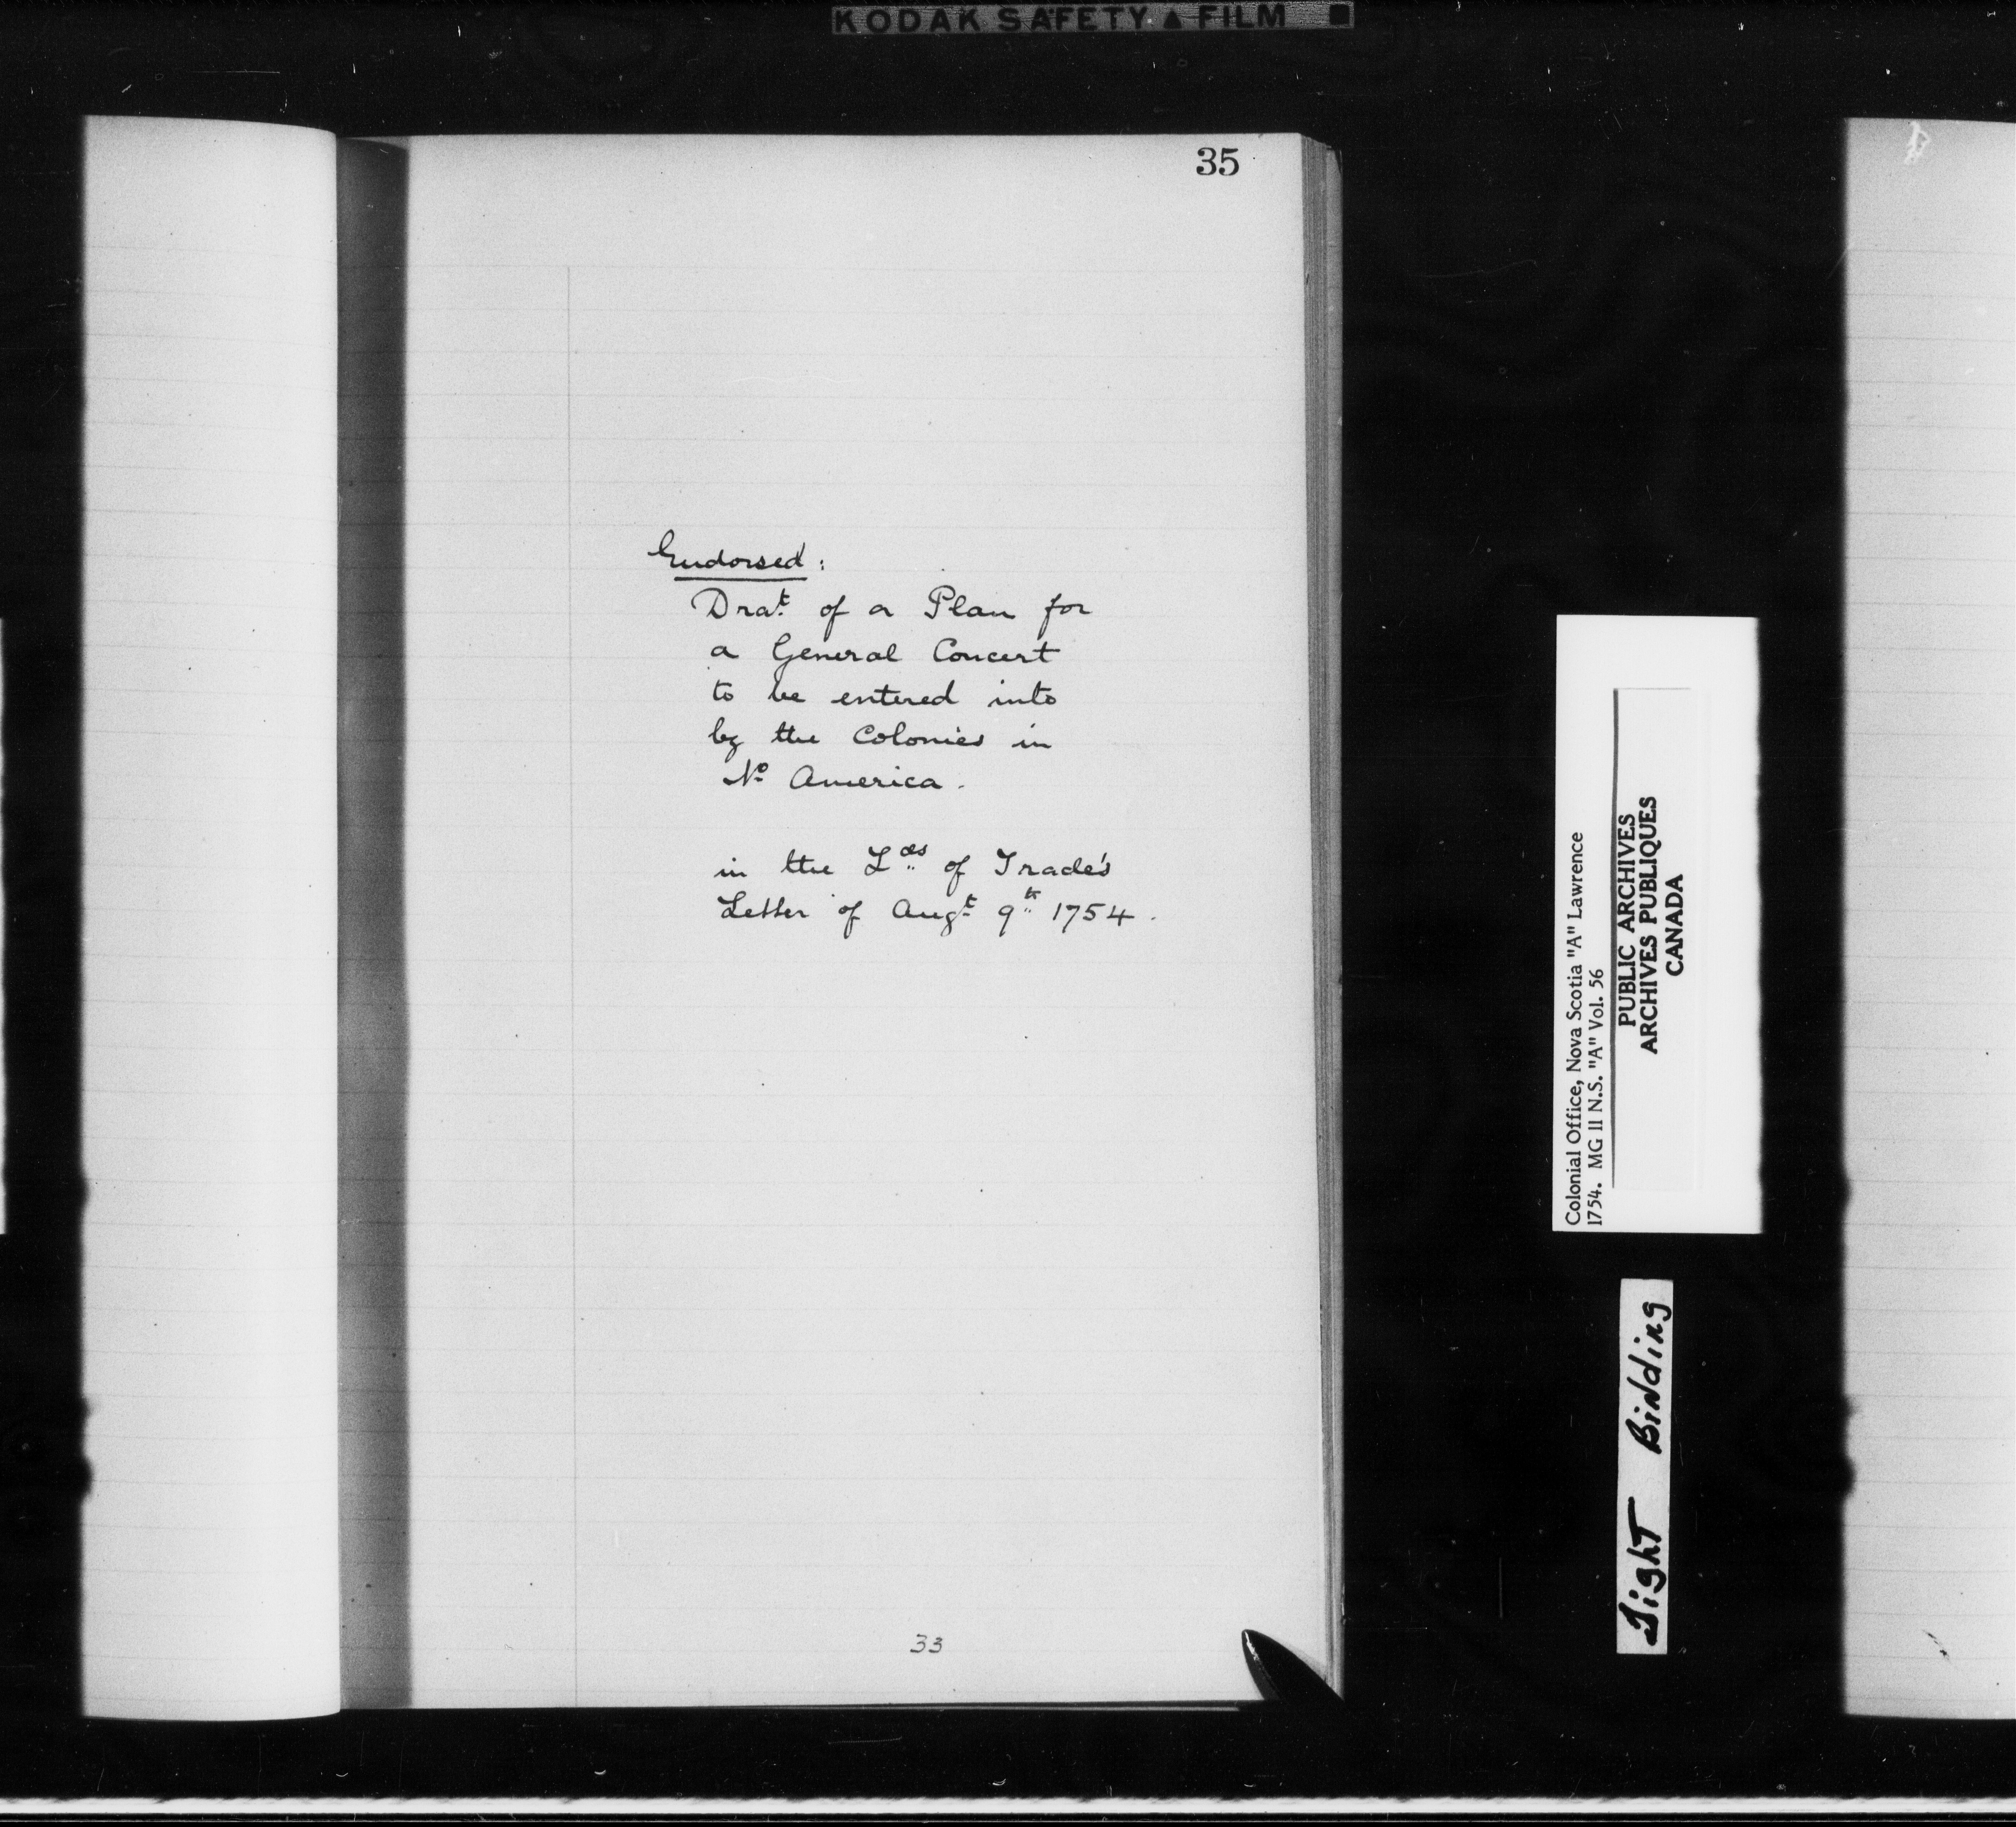 KODAK SAFETY ▲ FILM ■
35
Endorsed:
Dra.t of a Plan for
a General Concert
to be entered into
by the Colonies in
No America.
in the Lds of Trade's
Letter of Augt 9th 1754.
33
Colonial Office, Nova Scotia "A" Lawrence
1754. MG 11 N.S. "A" Vol. 56
PUBLIC ARCHIVES
ARCHIVES PUBLIQUES
CANADA
Tight Binding